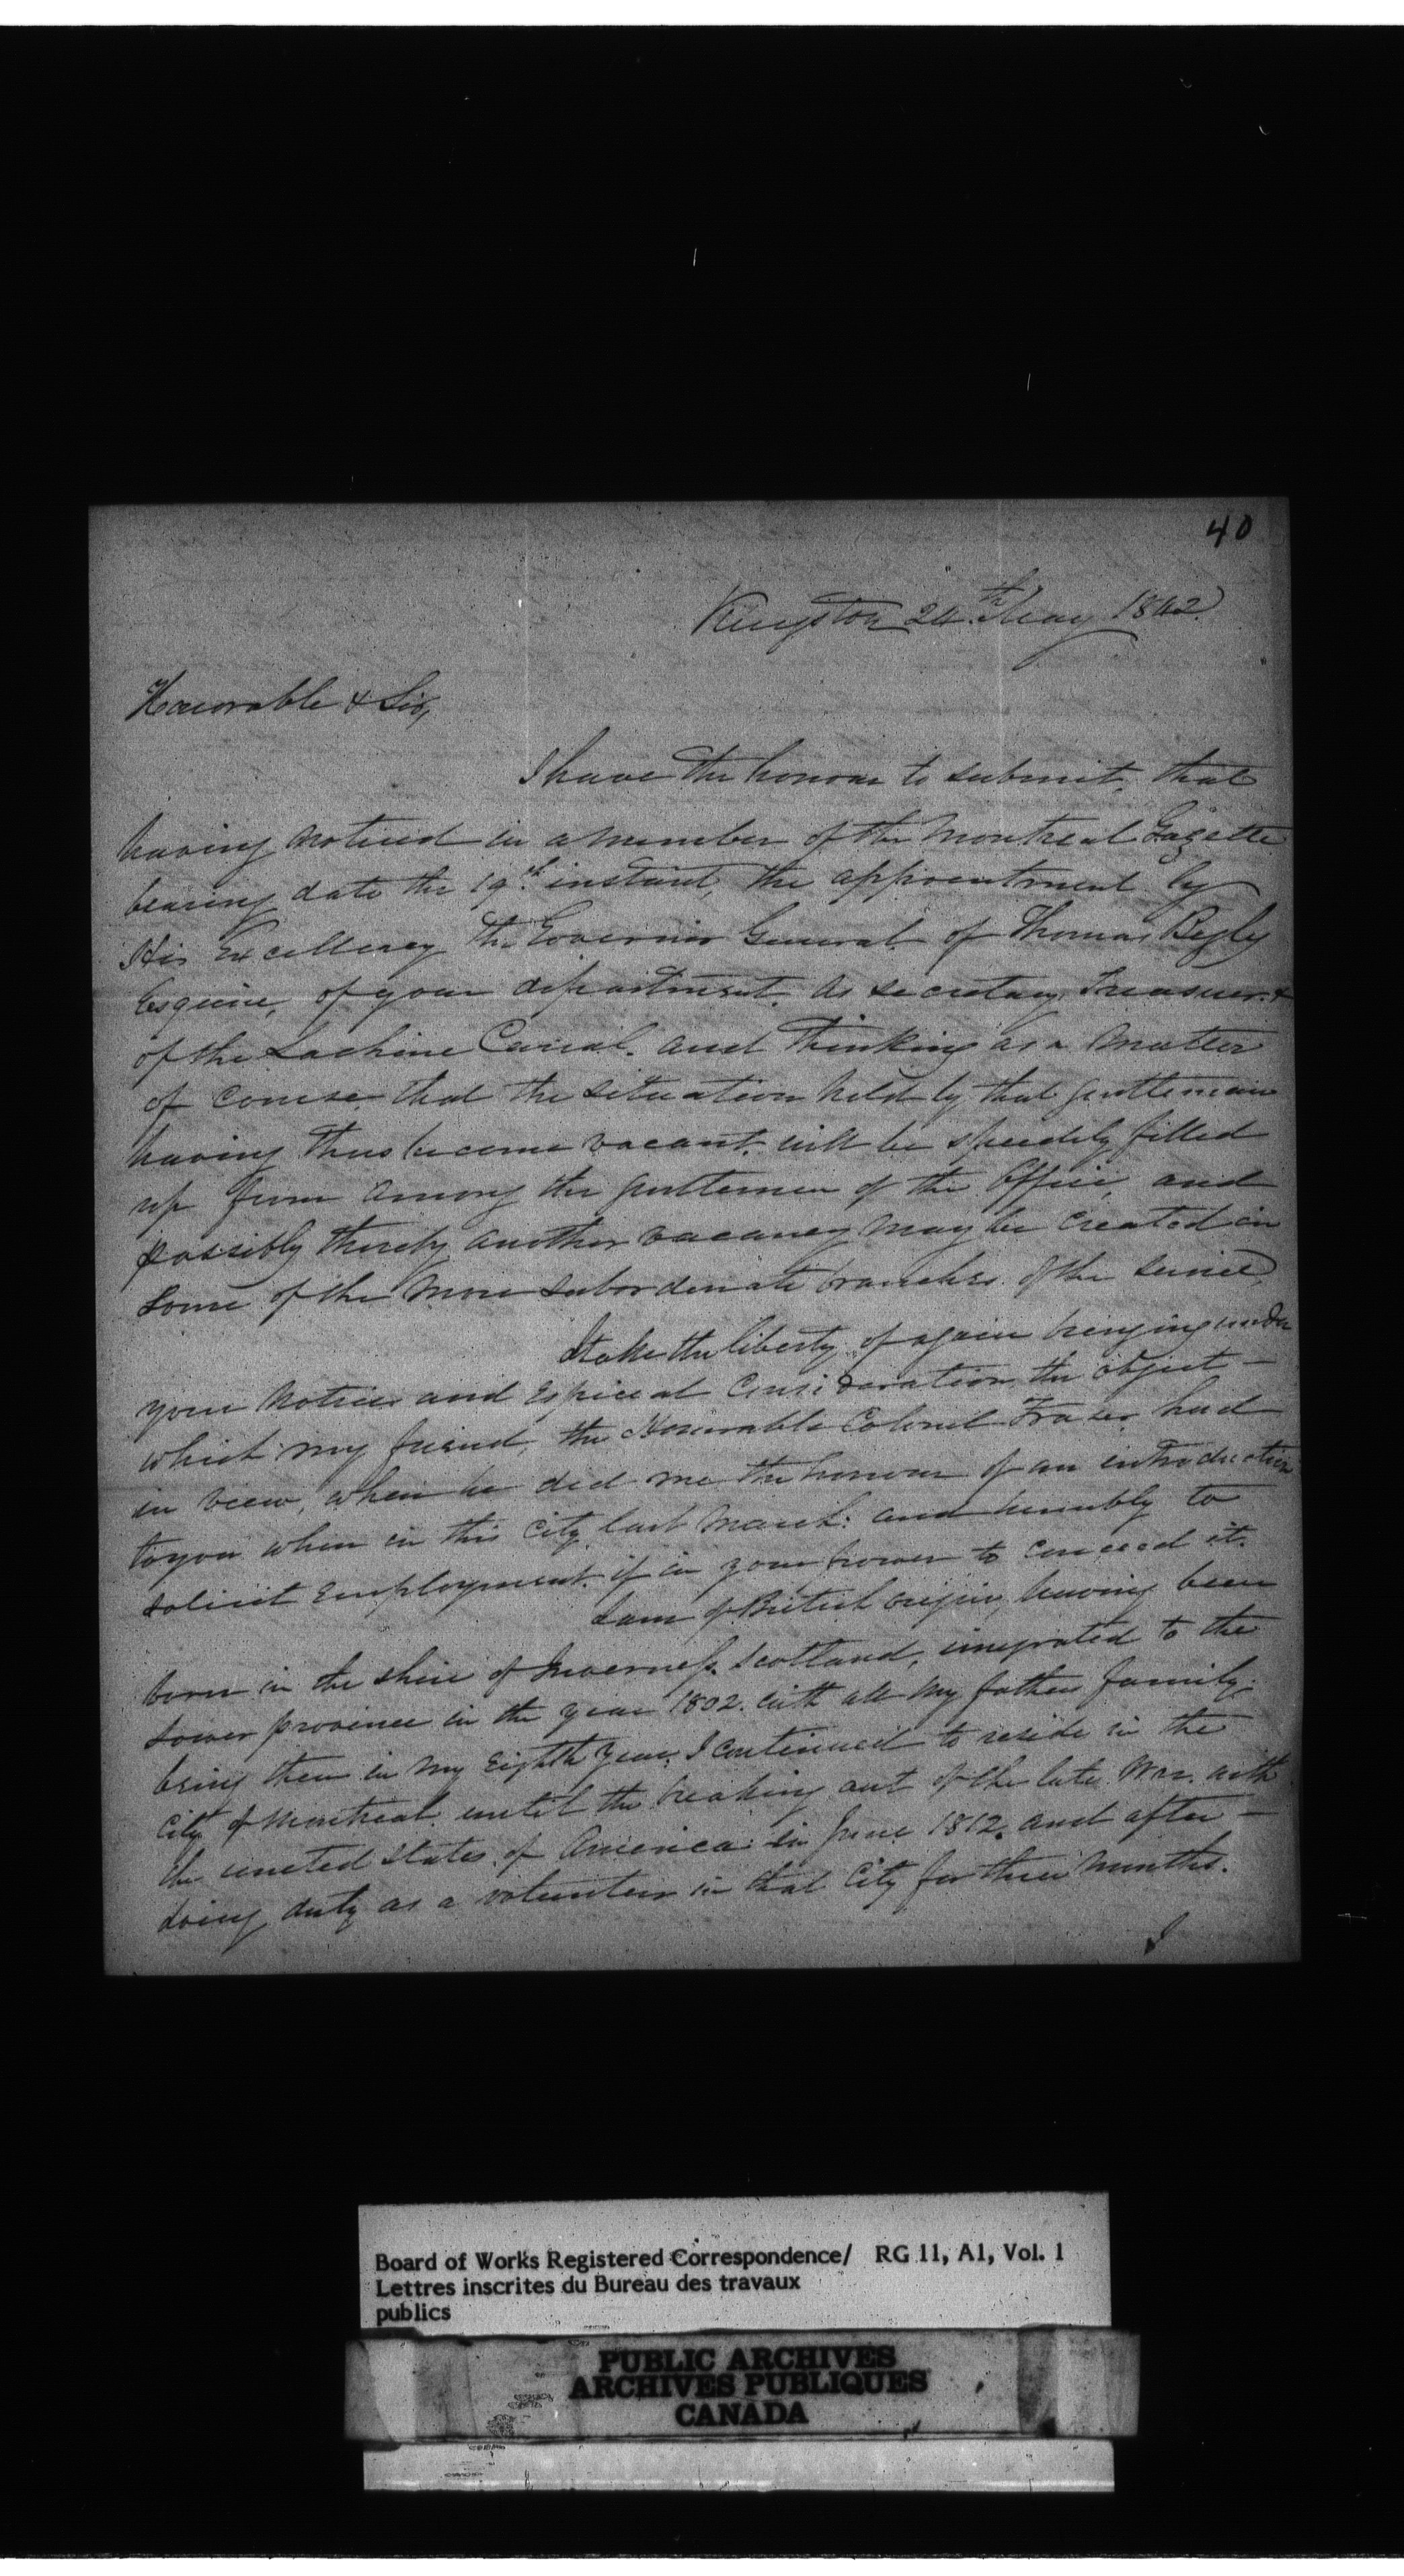 40
Kingston 24th May 1842.
Honorable & Sir,
I have the honour to submit, that
having noticed in a number of the Montreal Gazette
bearing date the 19th instant, the appointment by
His Excellency the Governor General of Thomas Begly
Esquire, of your department. As secretary Treasurer &
of the Lachine Canal. and Thinking as a Matter
of course that the situation held by that gentleman
having thus become vacant. will be speedily filled
up from among the gentlemen of the Office, and
possibly thereby another vacancy may be created in
some of the more subordenate branches of the service,
I take the liberty of again bringing under
your notice and espicial Consideration the object -
which my friend the Honorable Colonel Fraser had
in view, when he did me the honour of an introduction
to you when in this City last March: and humbly to
solicit Employment. if in your power to conceed it.
I am of British origin, having been
born in the shire of Inverness. Scotland, imigrated to the
Lower province in the year 1802. with all my fathers family.
being then in my Eighth Year. I continued to reside in the
City of Montreal until the breaking out of the late War. with
the united states of America: in June 1812. and after -
doing duty as a volunteer in that City for three Months.
I
Board of Works Registered Correspondence/ RG 11, A1, Vol. 1
Lettres inscrites du Bureau des travaux
publics
PUBLIC ARCHIVES
ARCHIVES PUBLIQUES
CANADA